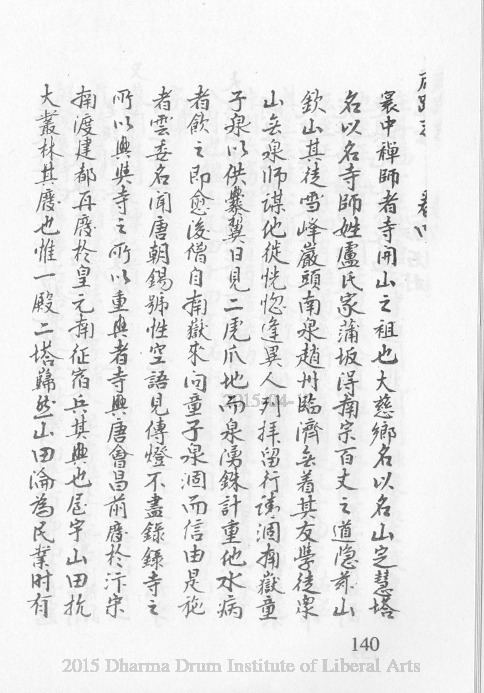 寰中禅師者寺開山之祖也大慈鄉名以名山定慧塔
名以名寺師姓盧氏家蒲坂得南宗百丈之道隐茲山
欽山其徒雪峰巖頭南泉趙州臨濟無着其友學徒衆
山無泉师謀他徙恍惚逢異人列拜留行請涸南嶽童
子泉以供爨翼日見二虎爪地而泉湧銖計重他水病
者飲之即愈後僧自南嶽來问童子泉涸而信由是施
者雲委名闻唐朝錫號性空語見傳燈不盡錄錄寺之
所以興與寺之所以重興者寺興唐會昌前廢於汴宋
南渡建都再廢於皇元南征宿兵其興也屋宇山田抗
大叢林其廢也惟一殿二塔巋然山田淪為民業时有
140
2015-04-
2015 Dharma Drum Institute of Liberal Arts